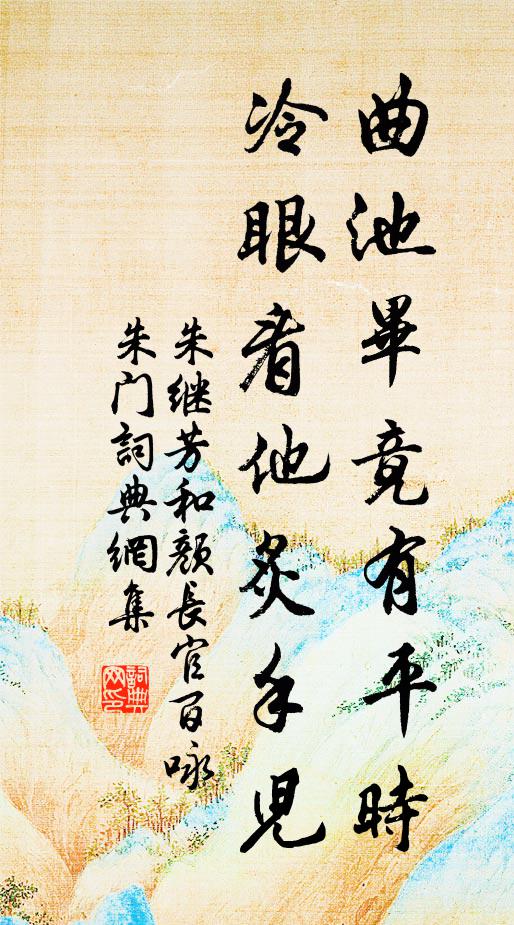 曲池畢竟有平時
冷眼看他炙手兒
朱继芳和顏長官百咏
朱门詞典網集
詞典网印